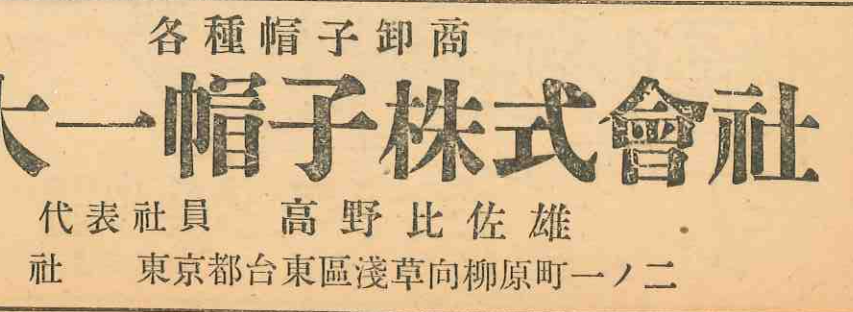 各種帽子卸商
大一帽子株式會社
代表社員 高野比佐雄
社 東京都台東區淺草向柳原町一ノ二